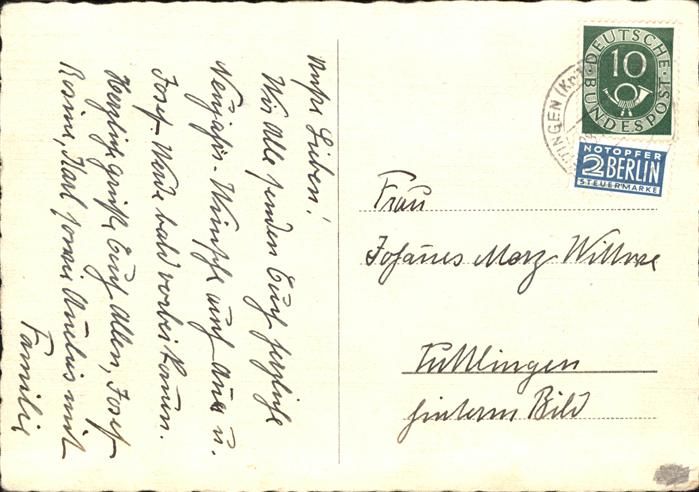 Meine Lieben!
Wir Alle senden Euch herzliche
Neujahrs-Wünsche auch Anna u.
Josef. Werde bald vorbei kommen.
Herzliche Grüße Euch Allen, Josef
Rosine, Karl sowie mit
Familie
DEUTSCHE BUNDESPOST
10
NOTOPFER
2 BERLIN
STEUERMARKE
TINGEN (Kr.
Frau
Johannes Merz Witwe
Tuttlingen
hinterm Bild